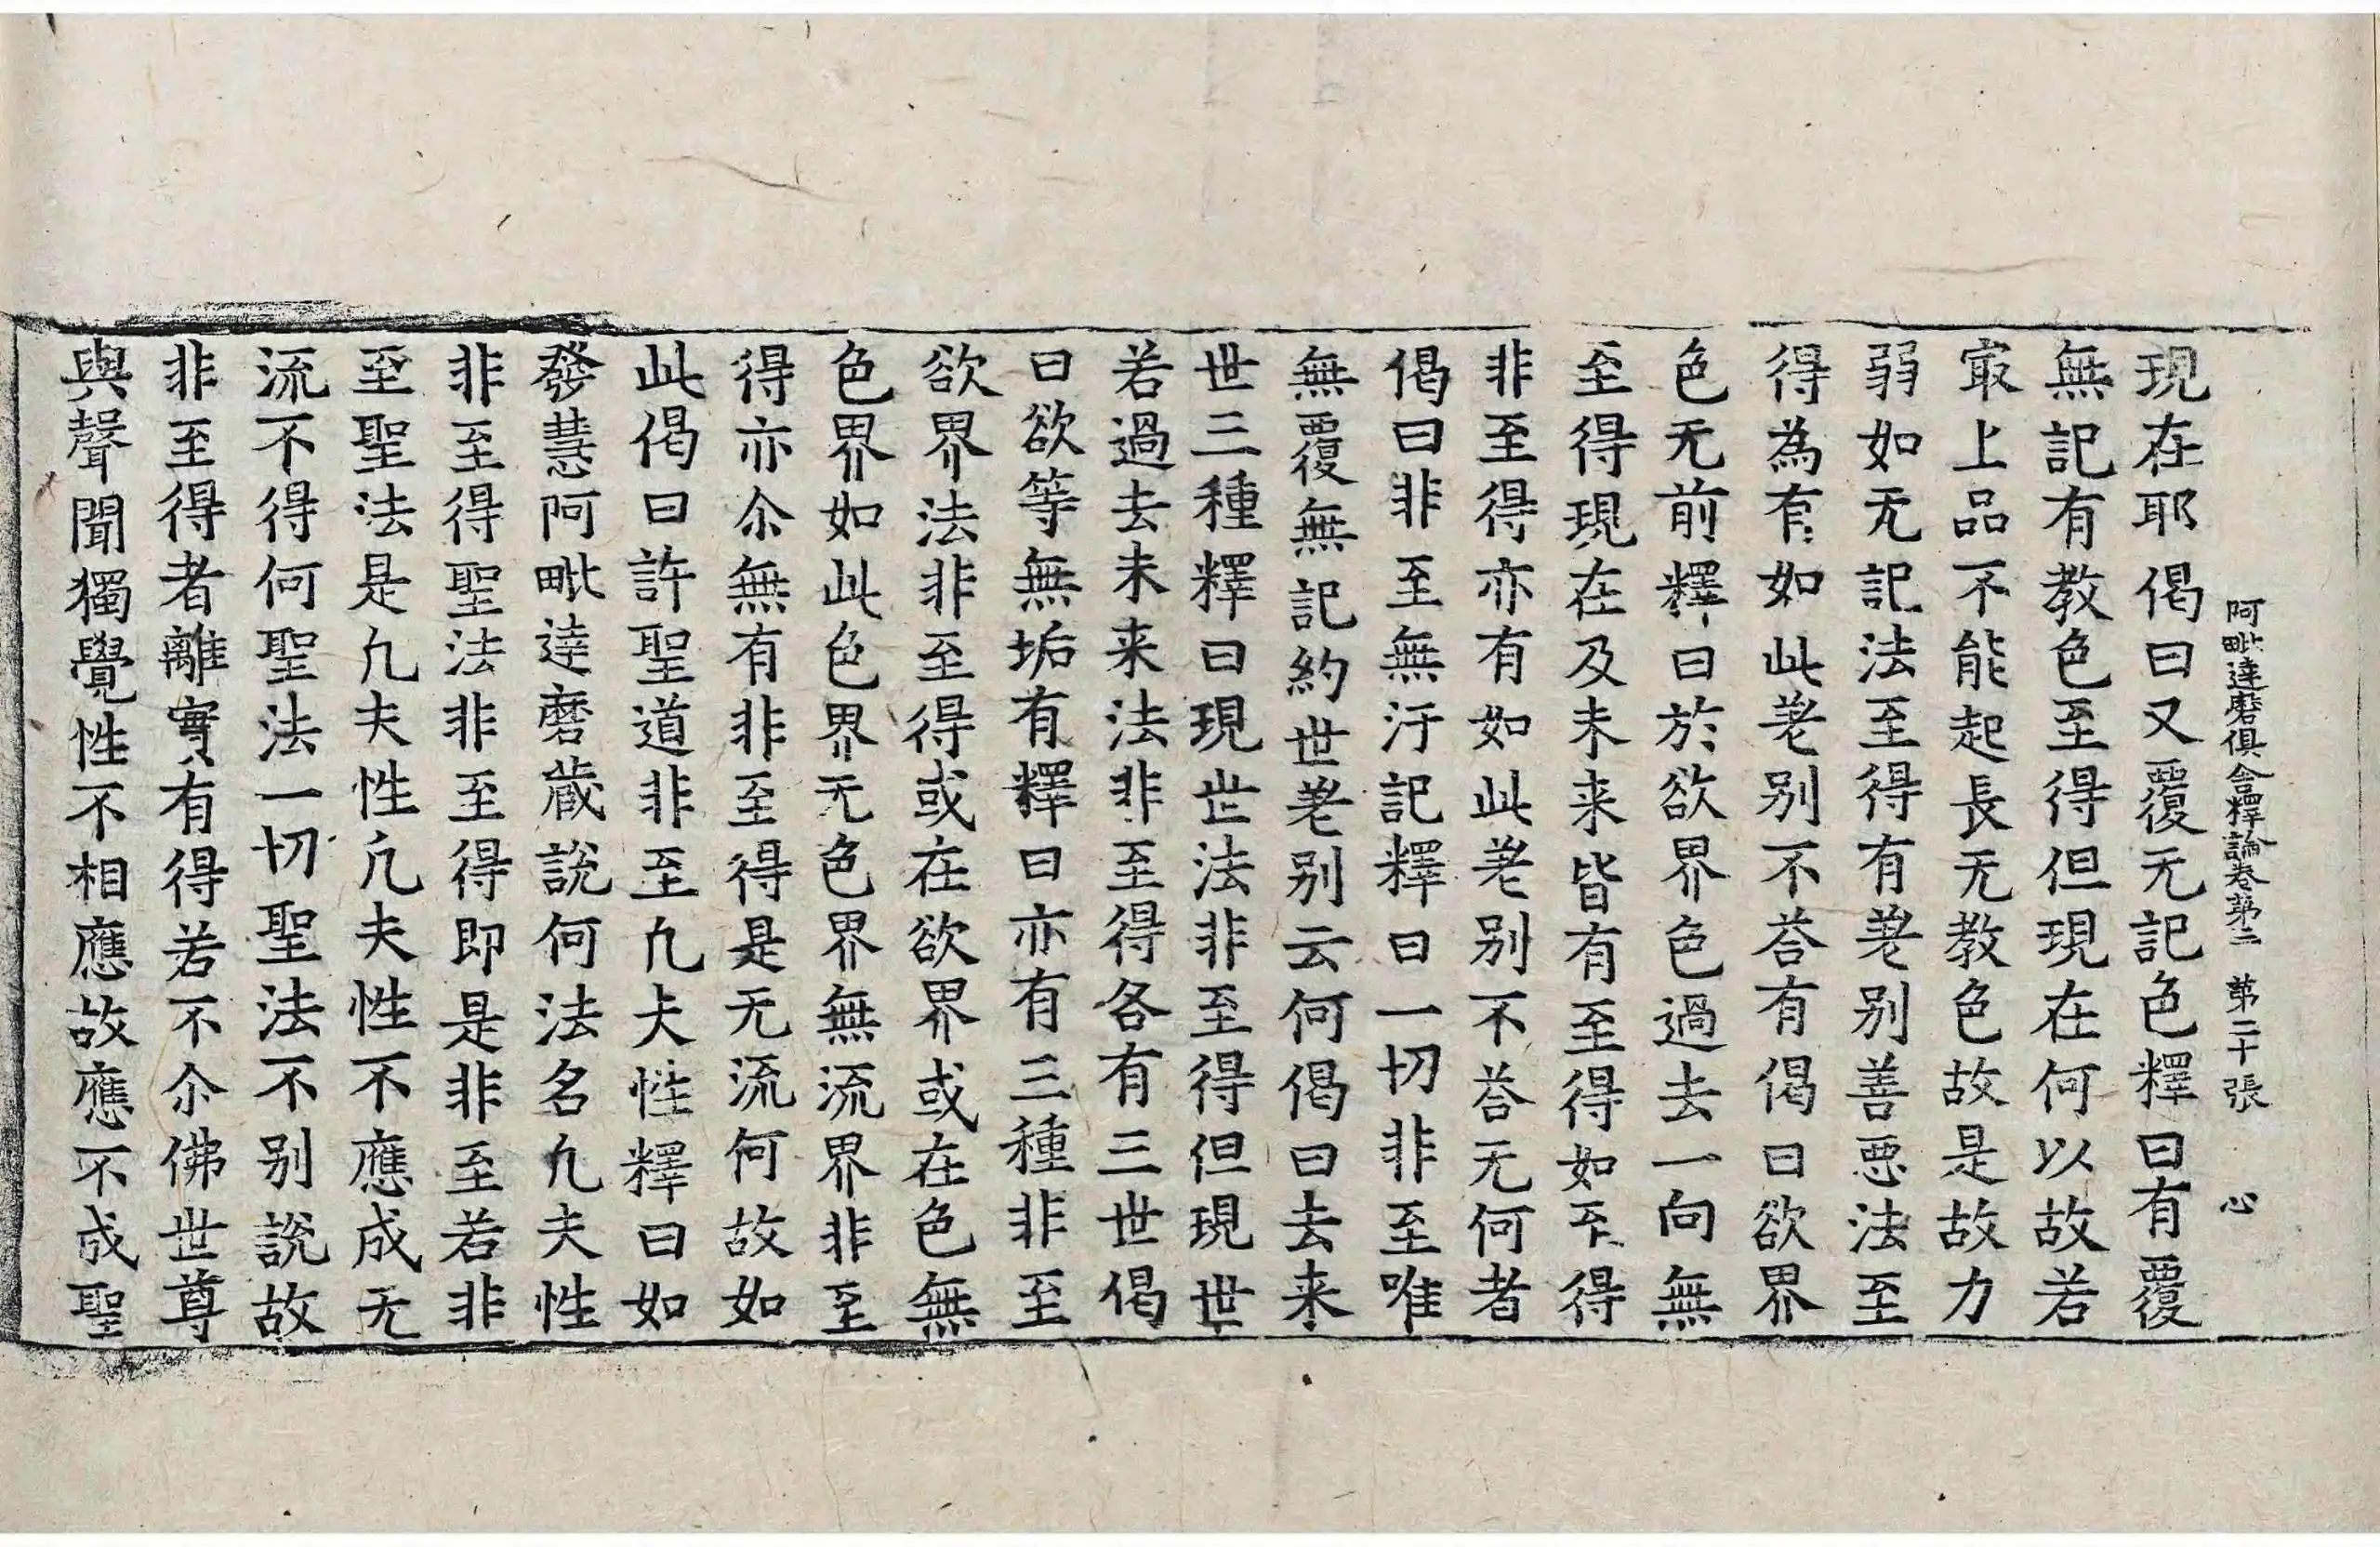 阿毗達磨俱舍釋論卷第二 第二十張 心
現在耶偈曰又覆无記色釋曰有覆
無記有教色至得但現在何以故若
㝡上品不能起長无教色故是故力
弱如无記法至得有差别善惡法至
得為有如此差别不荅有偈曰欲界
色无前釋曰於欲界色過去一向無
至得現在及未来皆有至得如不得
非至得亦有如此差别不荅无何者
偈曰非至無汙記釋曰一切非至唯
無覆無記約世差别云何偈曰去来
世三種釋曰現世法非至得但現世
若過去未来法非至得各有三世偈
曰欲等無垢有釋曰亦有三種非至
欲界法非至得或在欲界或在色無
色界如此色界无色界無流界非至
得亦尒無有非至得是无流何故如
此偈曰許聖道非至凢夫性釋曰如
發慧阿毗達磨藏說何法名凢夫性
非至得聖法非至得即是非至若非
至聖法是凢夫性凢夫性不應成无
流不得何聖法一切聖法不别說故
非至得者離實有得若不尒佛世尊
與聲聞獨覺性不相應故應不成聖